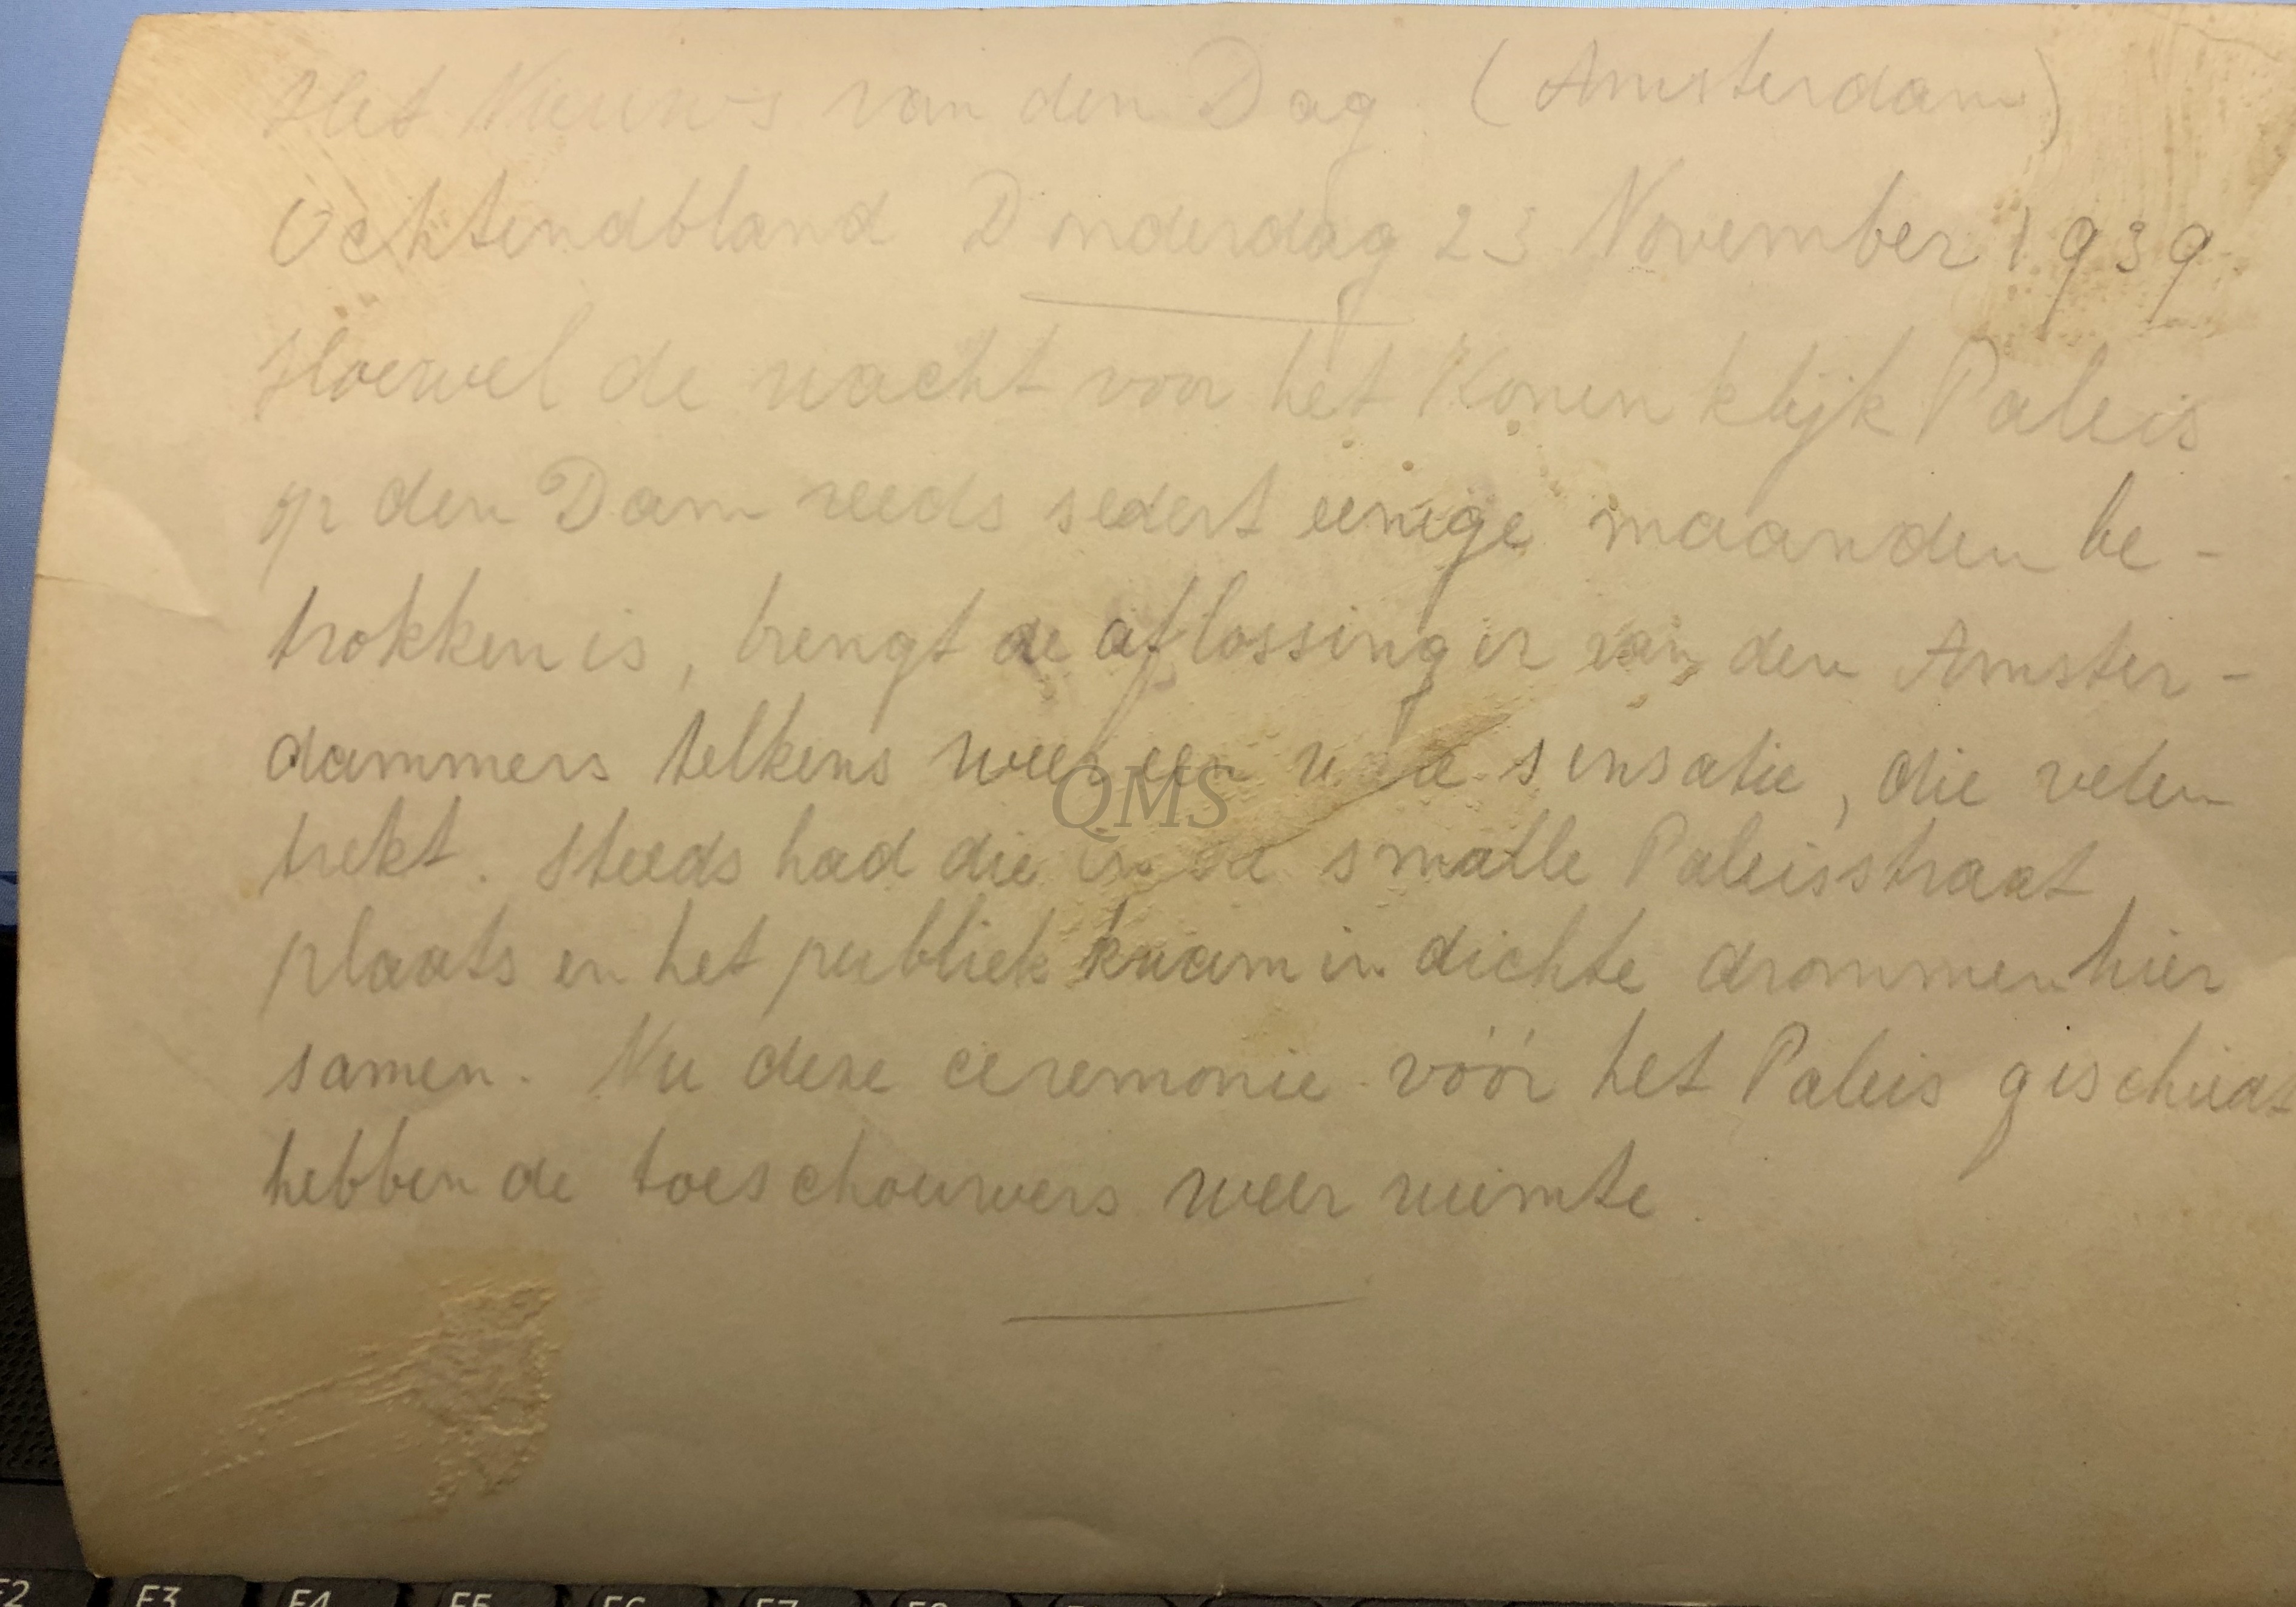 Het Nieuws van den Dag (Amsterdam)
Ochtendbland Donderdag 23 November 1939.
Hoewel de wacht voor het Koninklijk Paleis
op den Dam reeds sedert eenige maanden be-
trokken is, brengt de aflossing er van den Amster-
dammers telkens weer een sensatie, die velen
trekt. Steeds had die in de smalle Paleisstraat
plaats en het publiek kwam in dichte drommen hier
samen. Nu deze ceremonie vóór het Paleis geschiedt
hebben de toeschouwers weer ruimte.
QMS
F2 F3 F4 F5 F6 F7 F8